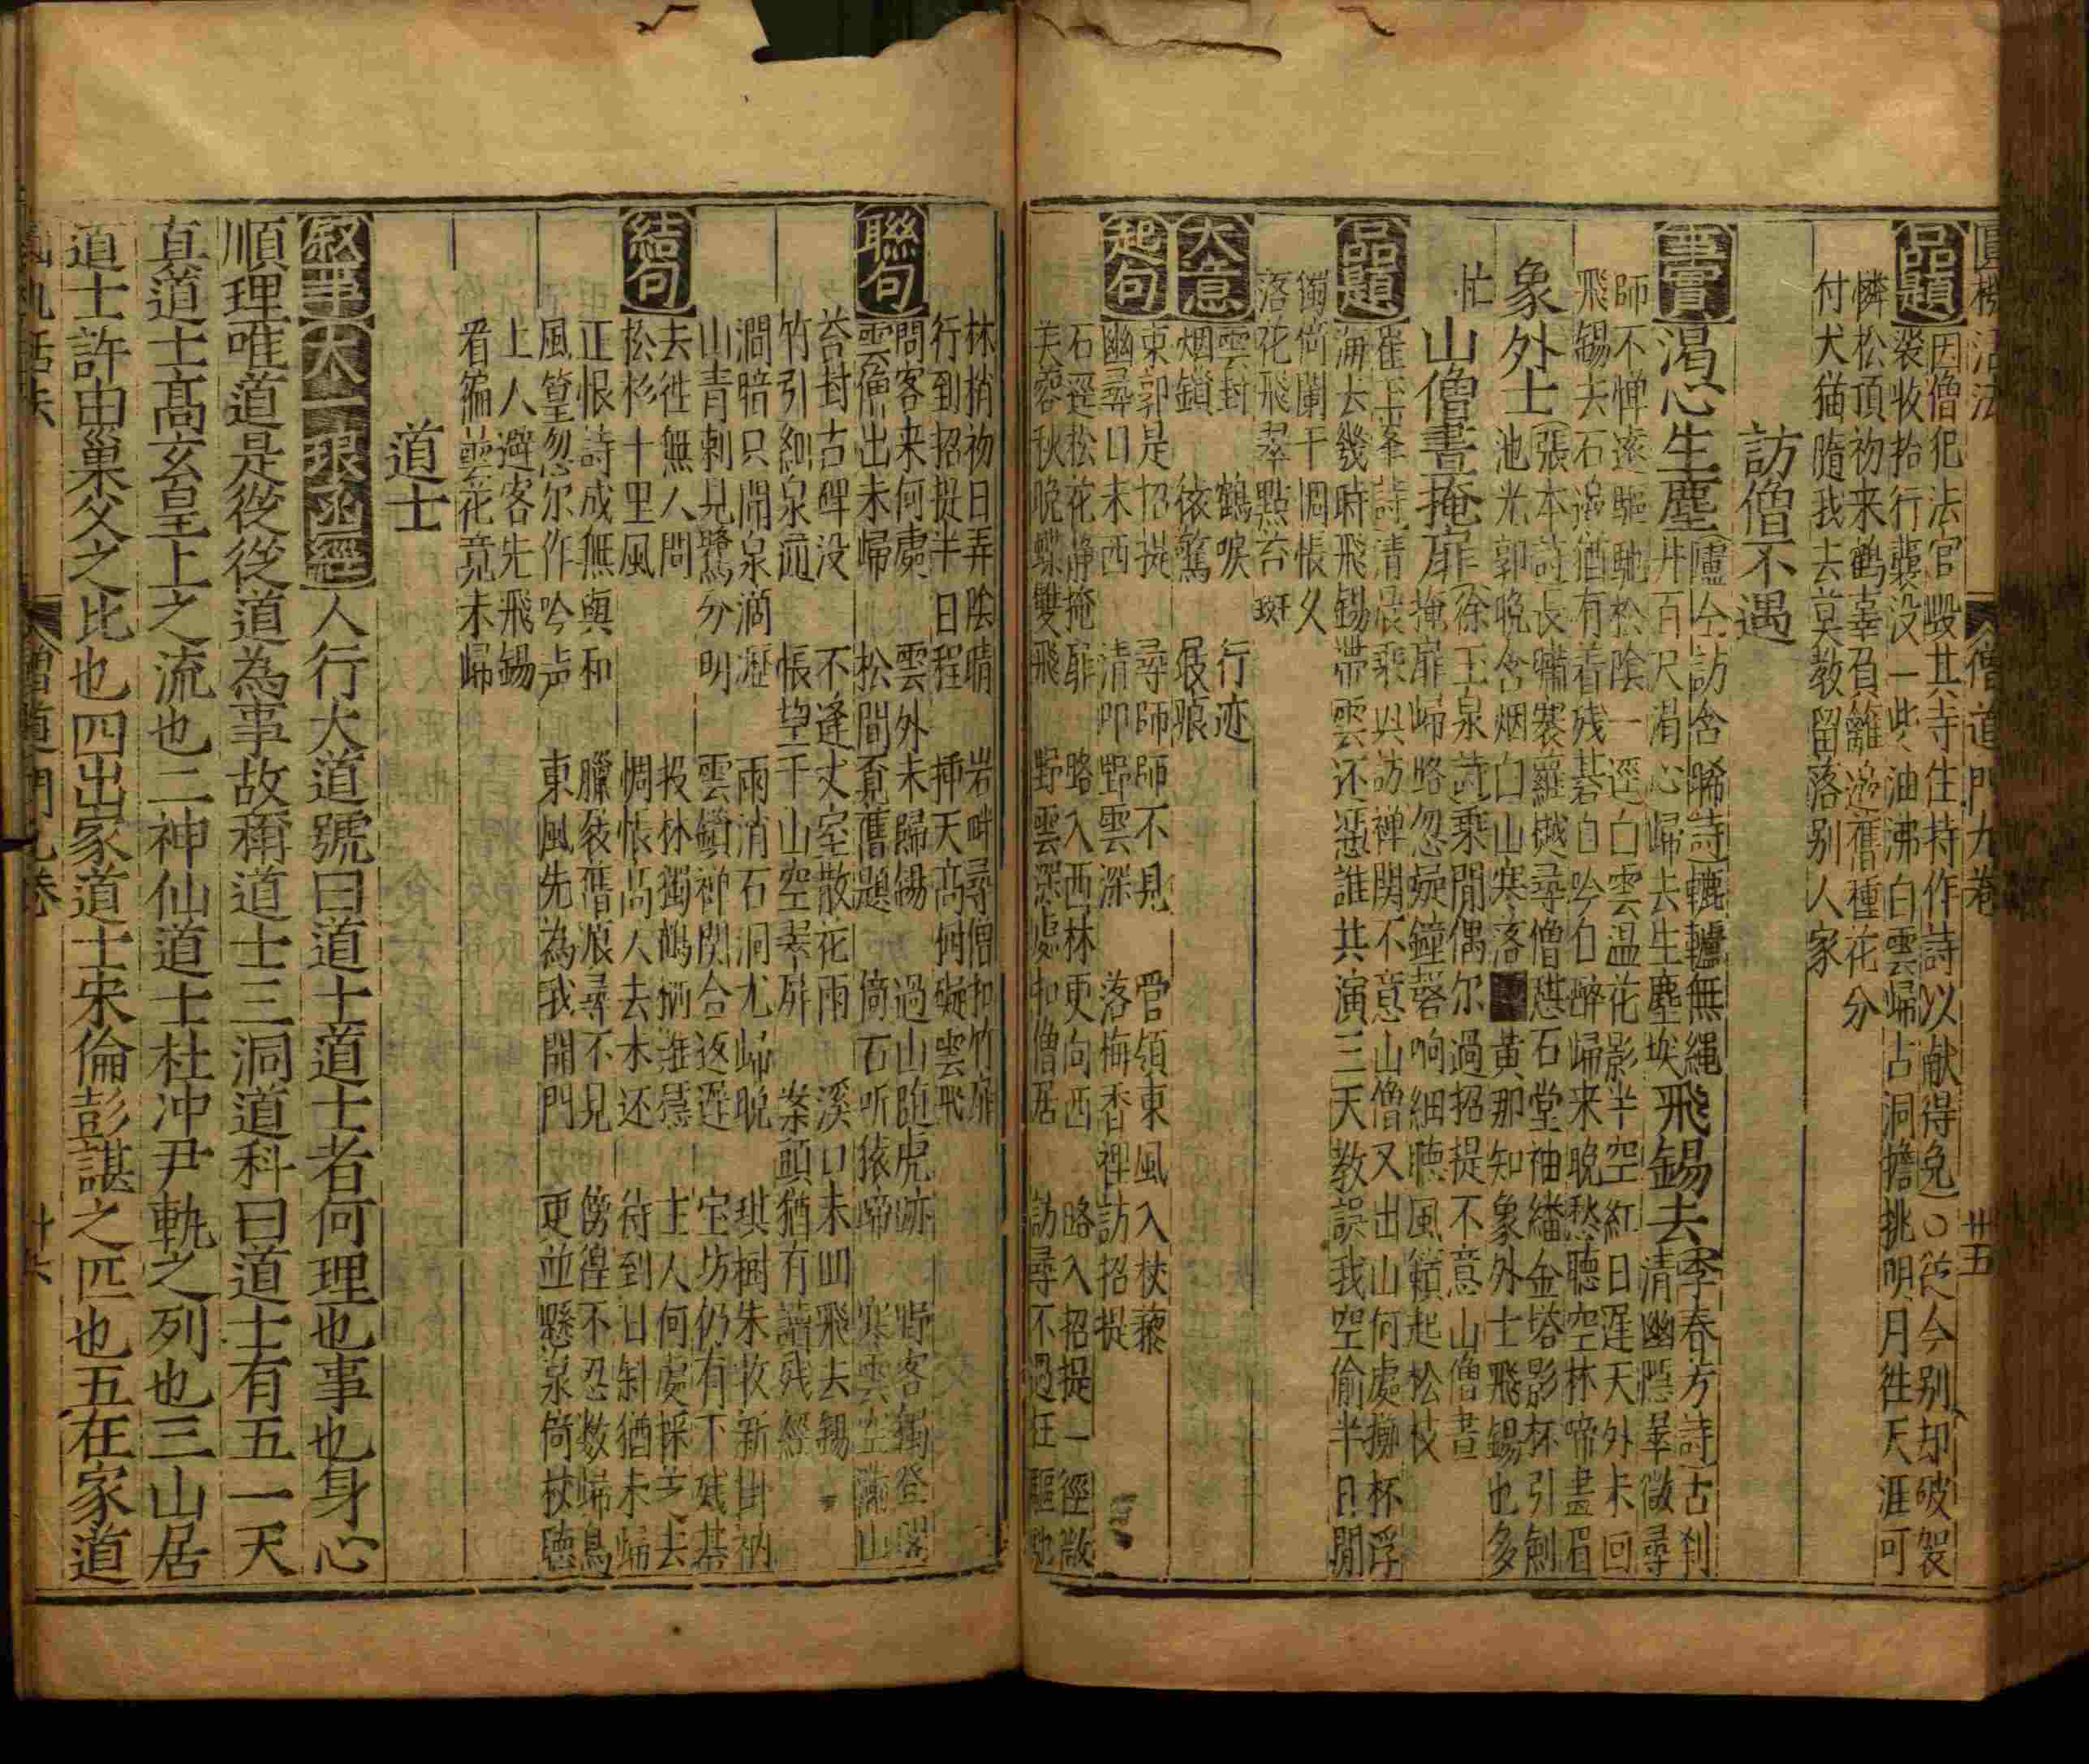 圓機活法 僧道門九卷 卅五
品題
因僧犯法官毀其寺住持作詩以献得免○從今别却破袈
裟收拾行囊没一些油沸白雲歸占洞擔挑明月徃天涯可
憐松頂初来鹤辜負籬邉舊種花分
付犬猫隨我去莫教留落别人家
訪僧不遇
事實
渴心生塵
盧仝訪含曦詩轆轤無繩
井百尺渴心歸去生塵埃
飛錫去
季春芳詩古刹
清幽慿峯微尋
師不惮逺驅馳松陰一逕白雲温花影半空紅日遲天外未回
飛錫去石邉猶有着残碁自吟白醉歸来晚愁聽空林啼畫眉
象外士
張本詩長嘯褰蘿樾尋僧憇石堂袖繙金塔影杯引劍
池光郭晚含烟白山寒落 黄那知象外士飛錫也多
忙
山僧晝掩扉
徐玉泉詩乘閒偶尔過招提不意山僧晝
掩扉歸路忽疑鐘磬响細聴風籟起松枝
品題
崔玉峯詩清晨乘兴訪禅関不意山僧又出山何處擲杯浮
海去幾時飛錫帶雲还慿誰共演三天教誤我空偷半日閒
獨倚闌干惆悵久
落花飛翠點苔斑
大意
雲封 鶴唳 行迹
烟鎖 依篱 屐痕
起句
東郭是招提 尋師師不見 管領東風入杖藜
幽尋日未西 清叩野雲深 落梅香裡訪招提
石逕松花静掩扉 路入西林更向西 路入招提一徑微
芙蓉秋晚蝶雙飛 野雲深處扣僧居 訪尋不遇在驅馳
林梢初日弄陰晴 岩畔尋僧扣竹扉
行到招提半日程 揷天髙樹碍雲飛
聯句
問客来何處 雲外未歸錫 過山跑虎跡 野客獨登閣
雲僧出未歸 松間覔舊題 倚石听猿啼 寒雲空滿山
苔封古碑没 不逢丈室散花雨 溪口未回飛去錫
竹引細泉遠 悵望千山空翠屏 案頭猶有讀残經
澗暗只聞泉滴瀝 雨消石洞尤歸晚 琪樹朱牧新掛衲
山青剩見鷺分明 雲鎖禅関合返遲 宝坊仍有下残棊
去徃無人問 投林獨鶴栖遲暮 主人何處採芝去
松杉十里風 惆悵高人去未还 待到日斜猶未歸
結句
正恨詩成無與和 臘裘舊痕尋不見 傍徨不忍数歸鳥
風篁忽尔作吟声 東風先為我開門 更並懸泉倚杖聴
上人避客先飛錫
看徧曇花竟未歸
道士
叙事
太一眼凾經
人行大道號曰道士道士者何理也事也身心
順理唯道是從從道為事故稱道士三洞道科曰道士有五一天
真道士髙玄皇上之流也二神仙道士杜冲尹軌之列也三山居
道士許由巢父之比也四出家道士宋倫彭諶之匹也五在家道
僧道門九卷 卅六